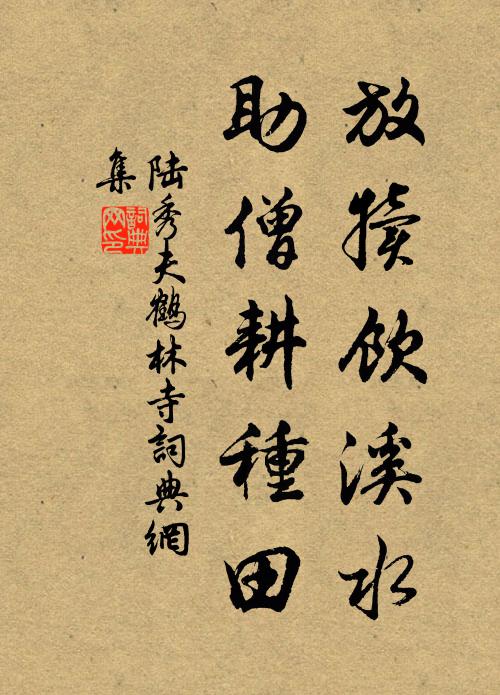 放犢飲溪水
助僧耕種田
陸秀夫鶴林寺詞典網
集
詞典
网印